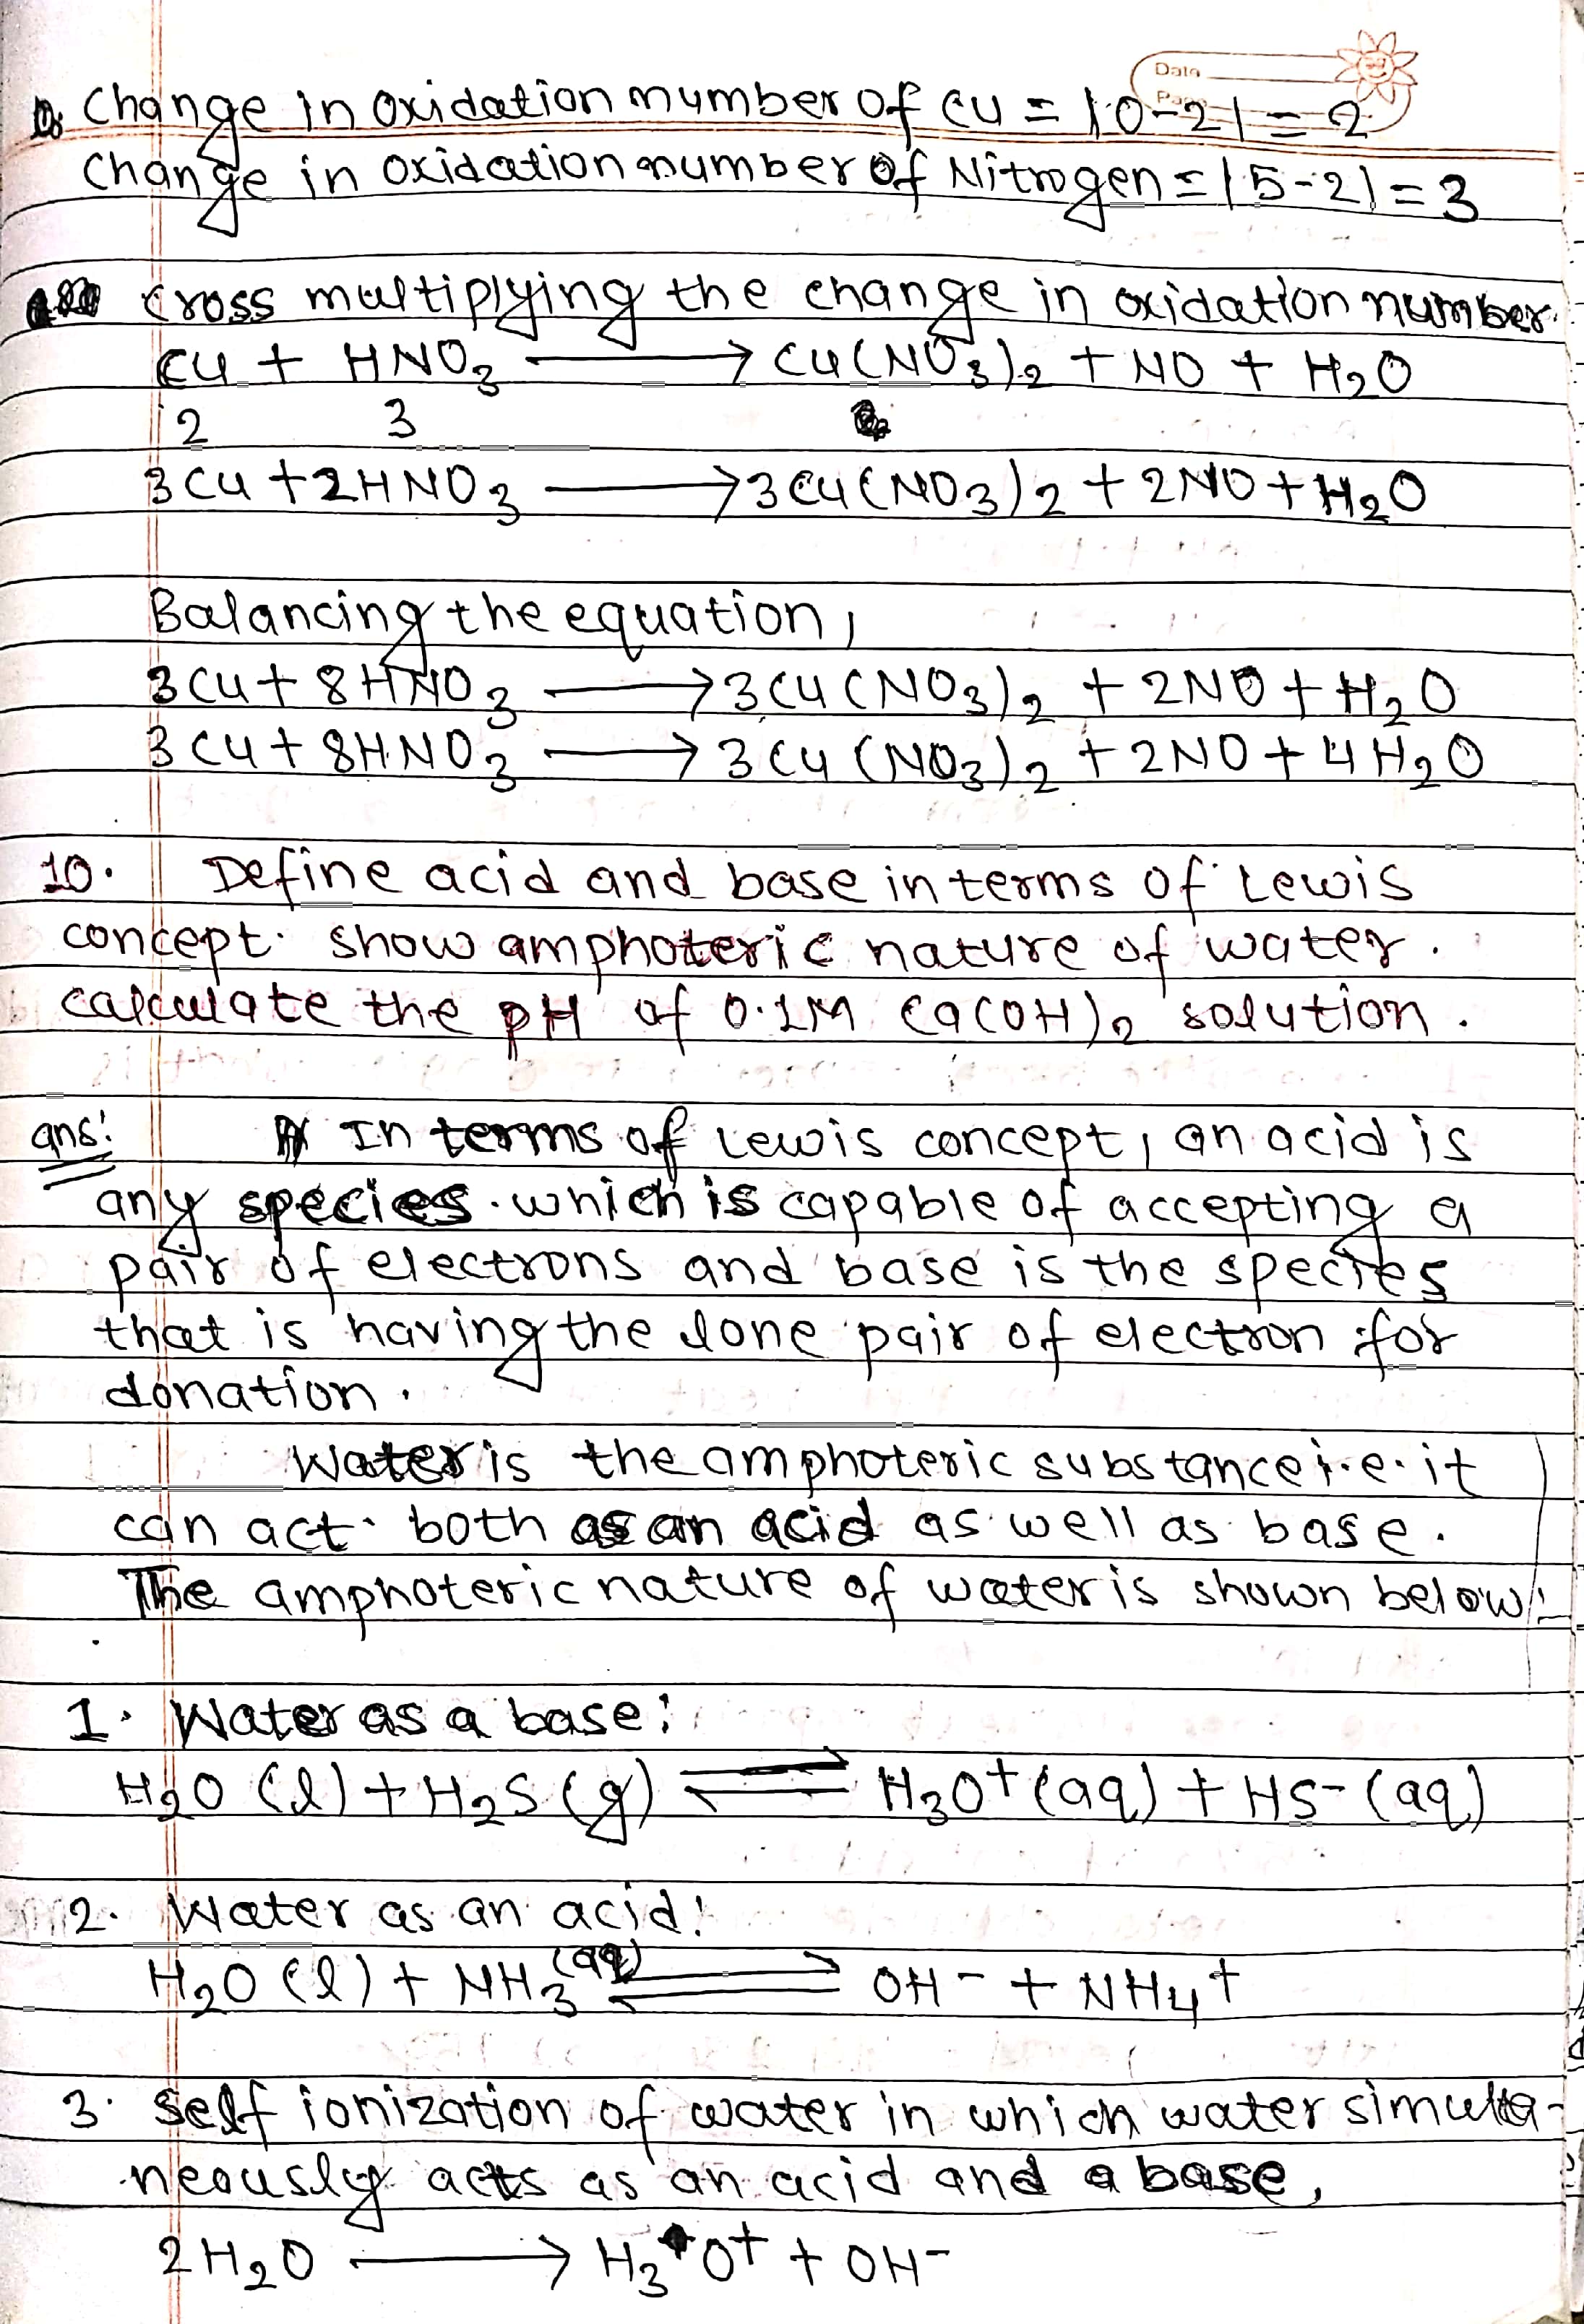 Date
Page
Change in oxidation number of Cu = |0-2| = 2
Change in oxidation number of Nitrogen = |5-2| = 3
Cross multiplying the change in oxidation number.
Cu + HNO₃ ⟶ Cu(NO₃)₂ + NO + H₂O
2 3
3Cu + 2HNO₃ ⟶ 3Cu(NO₃)₂ + 2NO + H₂O
Balancing the equation,
3Cu + 8HNO₃ ⟶ 3Cu(NO₃)₂ + 2NO + H₂O
3Cu + 8HNO₃ ⟶ 3Cu(NO₃)₂ + 2NO + 4H₂O
10. Define acid and base in terms of Lewis
concept. show amphoteric nature of water.
calculate the pH of 0.1M Ca(OH)₂ solution.
ans: In terms of Lewis concept, an acid is
any species which is capable of accepting a
pair of electrons and base is the species
that is having the lone pair of electron for
donation.
Water is the amphoteric substance i.e. it
can act both as an acid as well as base.
The amphoteric nature of water is shown below:
1. Water as a base:
H₂O (l) + H₂S (g) ⇌ H₃O+ (aq) + HS- (aq)
2. Water as an acid:
H₂O (l) + NH₃ (aq) ⇌ OH- + NH₄+
3. Self ionization of water in which water simulta-
neously acts as an acid and a base,
2H₂O ⟶ H₃O+ + OH-